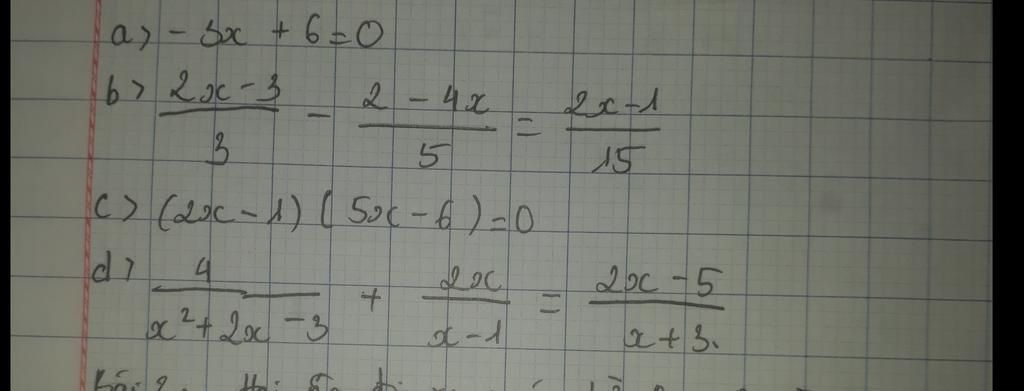 a) - 3x + 6 = 0
b) \frac{2x-3}{3} - \frac{2-4x}{5} = \frac{2x-1}{15}
c) (2x-1)(5x-6)=0
d) \frac{4}{x^2+2x-3} + \frac{2x}{x-1} = \frac{2x-5}{x+3}.